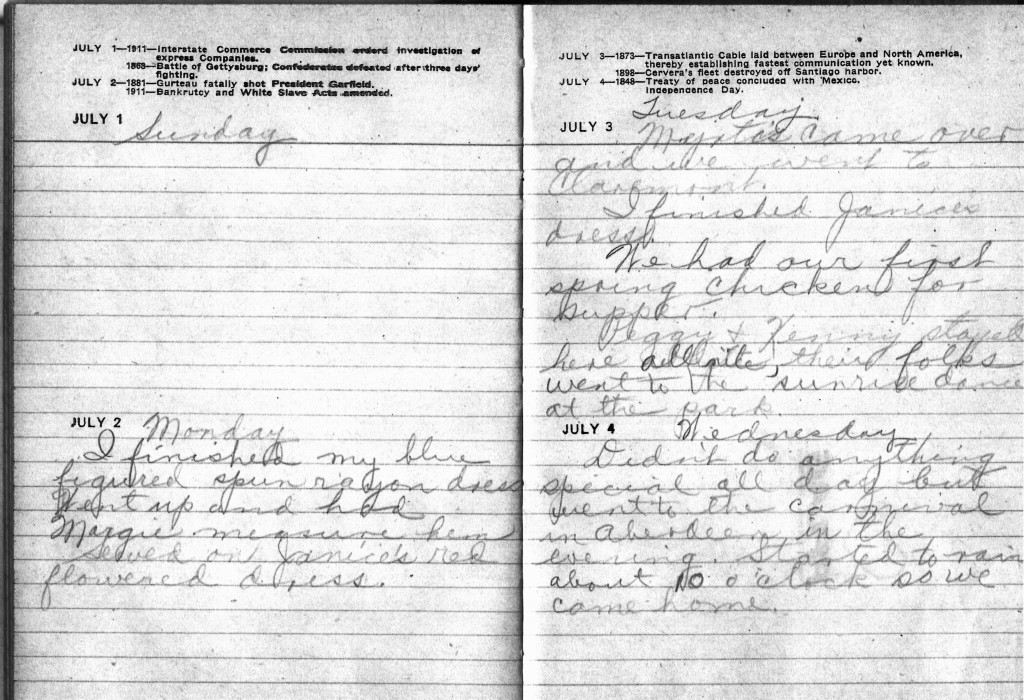 JULY 1—1911—Interstate Commerce Commission orderd investigation of
express Companies.
1863—Battle of Gettysburg; Confederates defeated after three days'
fighting.
JULY 2—1881—Gurteau fatally shot President Garfield.
1911—Bankrutcy and White Slave Acts amended.
JULY 1
Sunday
JULY 2
Monday
I finished my blue
figured spun rayon dress
Went up and had
Margie measure hem
Sewed on Janice's red
flowered dress.
JULY 3—1873—Transatlantic Cable laid between Europe and North America,
thereby establishing fastest communication yet known.
1898—Cervera's fleet destroyed off Santiago harbor.
JULY 4—1848—Treaty of peace concluded with Mexico.
Independence Day.
Tuesday
JULY 3
came over
and we went to
Claremont.
I finished Janice's
dress.
We had our first
spring chicken for
supper.
Peggy & Kenny stayed
here all nite, their folks
went to the sunrise dance
at the park.
JULY 4
Wednesday
Didn't do anything
special all day but
went to the carnival
in Aberdeen in the
evening. Started to rain
about 10 o'clock so we
came home.